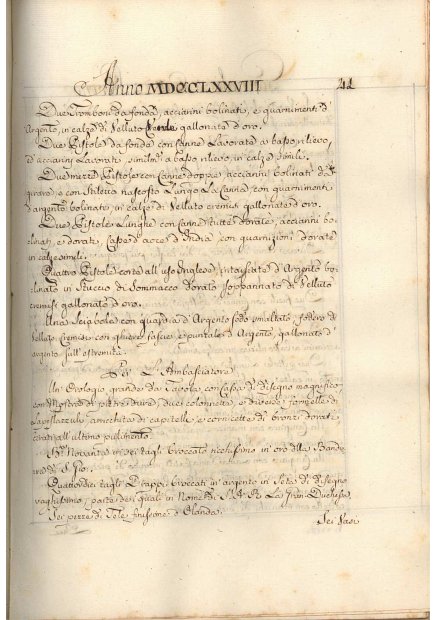 Anno MDCCLXXVIII 41
Due Tromboni da fonda, acciarini bolinati, e guarnimenti d'
Argento, in calze di Velluto Verde gallonate d'oro.
Due Pistole da fonda con Canne Lavorate a basso rilievo,
ed acciarini Lavorati similm.e a basso rilievo, in calze simili.
Due mezze Pistole con Canne doppie, acciarini bolinati da
girare, e con Stiletto nascosto Lungo La Canna, con guarnimenti
d'argento bolinati, in calze di Velluto cremisi gallonate d'oro.
Due Pistole Lunghe con Canne tutte dorate, acciarini bo-
linati, e dorati, Casse d'acero d'India, con guarnizioni dorate
in calze simili.
Quattro Pistole corte all'uso Inglese, intarsiate d'Argento bo-
linato in Stuccio di Sommacco dorato soppannato di Velluto
cremisi gallonato d'oro.
Una Sciabola con guardia d'Argento sodo smaltato, fodero di
Velluto Cremisi con ghiere, fascie, e puntale d'Argento, gallonato d'
argento sull'estremità.
Per L'Ambasciatore
Un Orologio grande da Tavola, con Cassa di disegno magnifico
con Mostra di pietre dure, due colonnette, e diverse formelle di
Lapislazuli, arricchita di capitelli, e cornicette di bronzi dorati
lavorati all'ultimo pulimento.
Novanta in sei tagli broccato ricchissimo in oro alla Band.
Quattordici tagli Drappi broccati in argento in Seta di disegno
vaghissimo, parte dei quali in Nome di S.A.R. La Gran-Duchessa.
Sei pezze di Tele finissime d'Olanda.
Sei Vasi